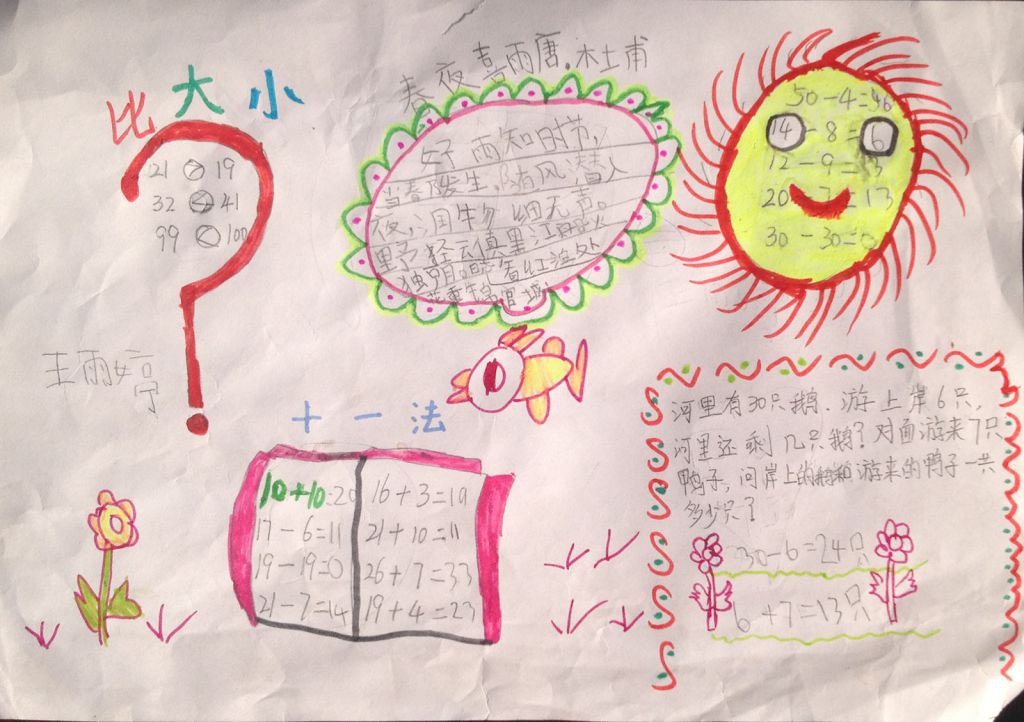 比大小
21 > 19
32 < 41
99 < 100
王雨婷
春夜喜雨唐.杜甫
好雨知时节,
当春乃发生,随风潜入
夜,润物细无声。
野径云俱黑江
独明晓看红湿处
花重锦官城
50-4=46
14-8=6
12-9=3
30-30=0
十一法
10+10=20
17-6=11
19-19=0
21-7=14
16+3=19
21+10=11
26+7=33
19+4=23
河里有30只鹅.游上岸6只,
河里还剩几只鹅?对面游来7只
鸭子,问岸上的鹅和游来的鸭子一共
多少只?
30-6=24只
6+7=13只